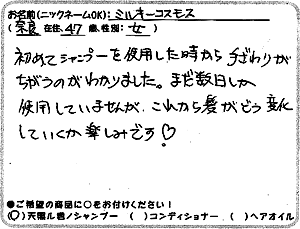 お名前(ニックネームOK): ミルキーコスモス
( 奈良 在住, 47 歳, 性別: 女 )
初めてシャンプーを使用した時から手ざわりが
ちがうのがわかりました。まだ数日しか
使用していませんが、これから髪がどう変化
していくか楽しみです♡
●ご希望の商品に○をお付けください!
(○) 天陽ル君ノシャンプー ( ) コンディショナー ( ) ヘアオイル